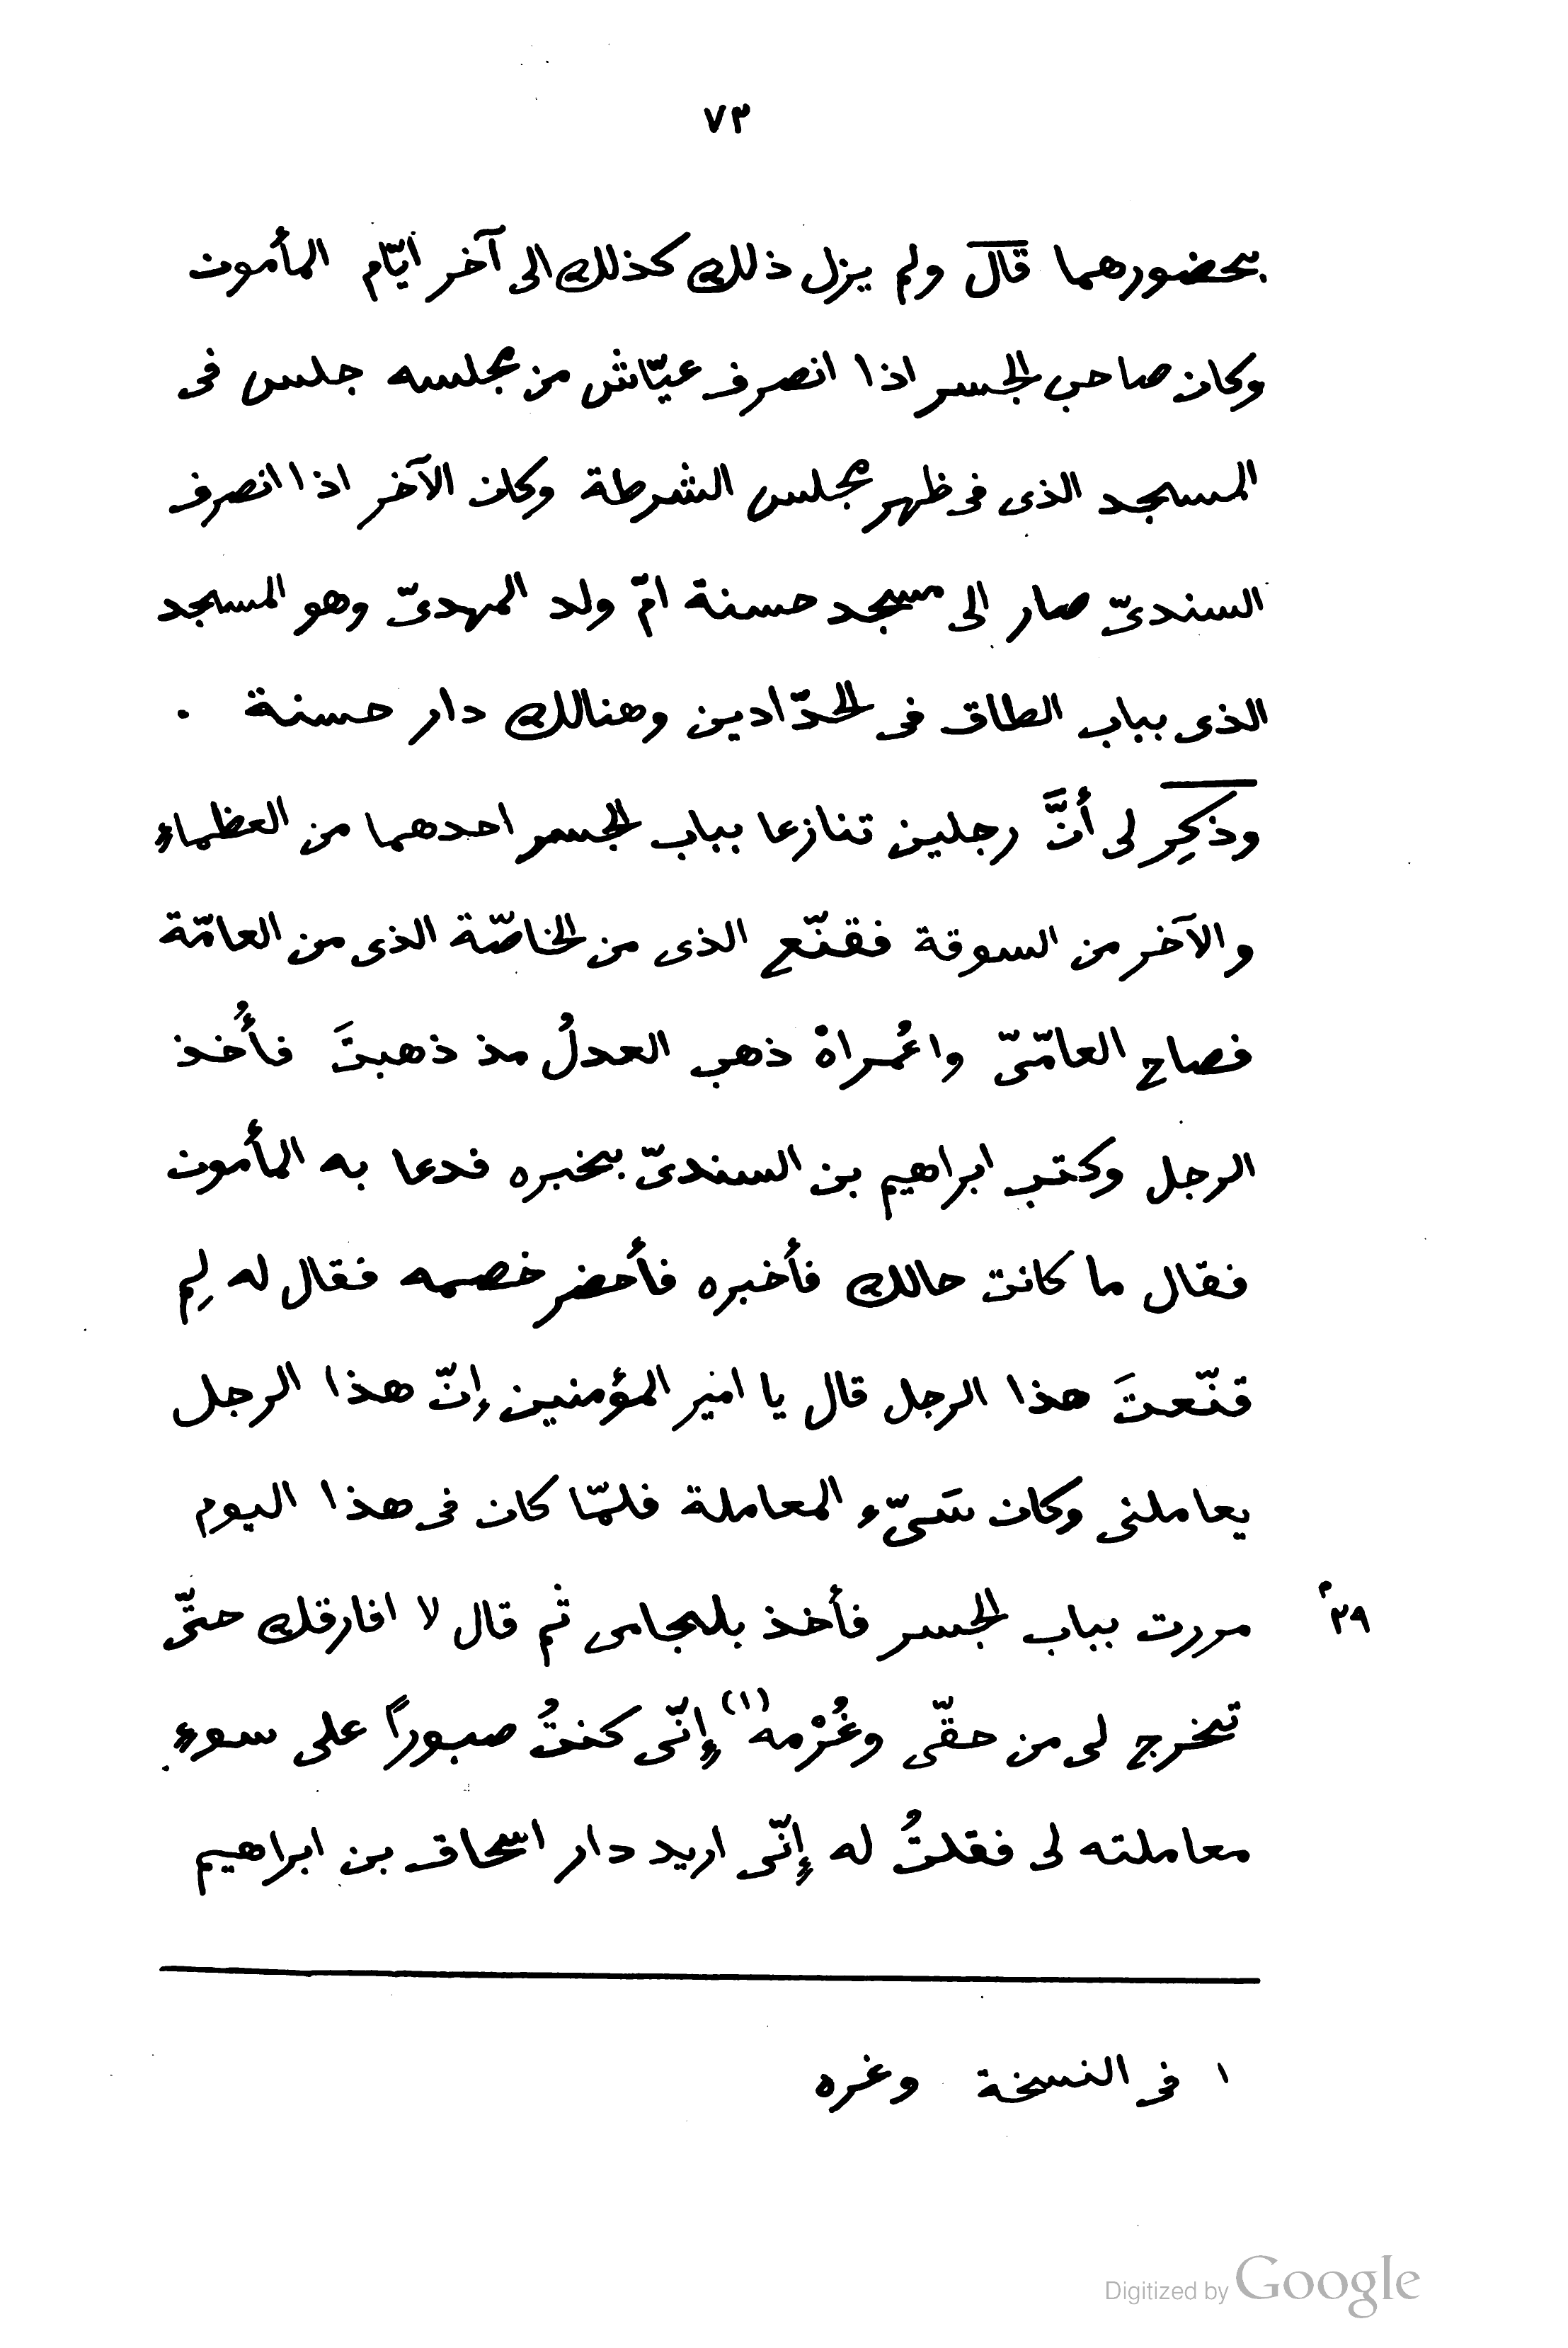 ٧٣
بحضورهما قال ولم يزل ذلك كذلك الى آخر ايّام المأمون
وكان صاحب الجسر اذا انصرف عيّاش من مجلسه جلس فى
المسجد الذى فى ظهر مجلس الشرطة وكان الآخر اذا انصرف
السندىّ صار الى مسجد حسنة امّ ولد المهدىّ وهو المسجد
الذى بباب الطاق فى الحدّادين وهنالك دار حسنة .
وذكِر لى أنَّ رجلين تنازعا بباب الجسر احدهما من العظماءِ
والآخر من السوقة فقنّع الذى من الخاصّة الذى من العامّة
فصاح العامّىّ واعُمراهْ ذهب العدلُ مذ ذهبتَ فأُخذ
الرجل وكتب ابراهيم بن السندىّ بخبره فدعا به المأمون
فقال ما كانت حالك فأخبره فأحضر خصمه فقال له لِم
قنّعتَ هذا الرجل قال يا امير المؤمنين إنّ هذا الرجل
يعاملنى وكان سَىّء المعاملة فلمّا كان فى هذا اليوم
مررت بباب الجسر فأخذ بلجامى ثم قال لا افارقك حتّى
٢٩
تخرج لى من حقّى وغُرْمه (١) إِنّى كنتُ صبوراً على سوءِ
معاملته لى فقلتُ له إِنّى اريد دار اسحاق بن ابراهيم
١ فى النسخة وغره
Digitized by Google